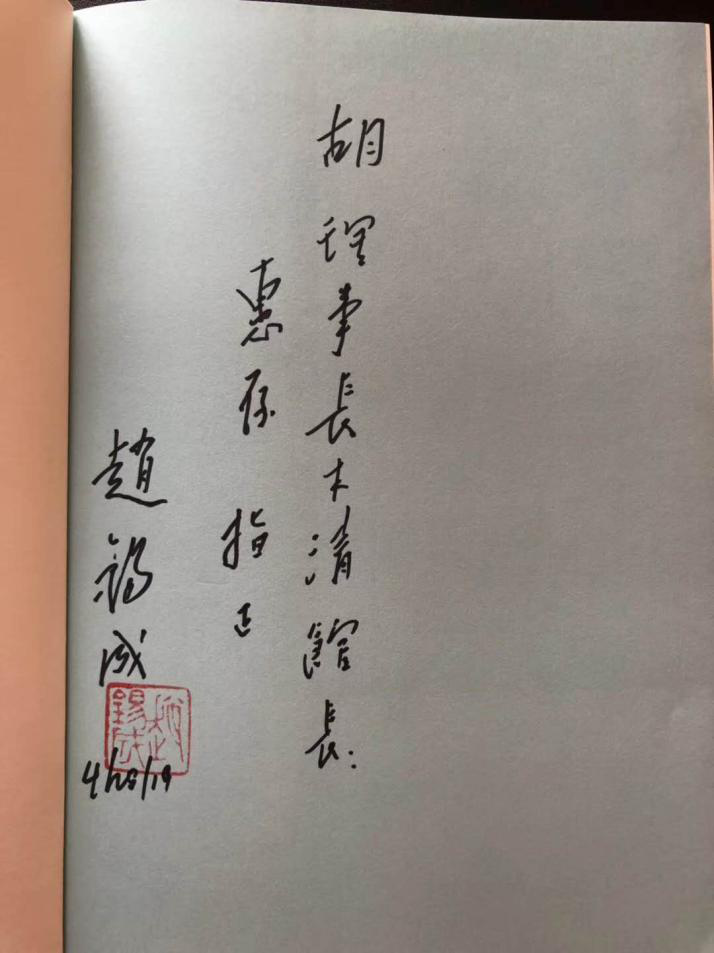 胡理事長木清館長
惠存 指正
趙錫成
趙錫成
4/28/19